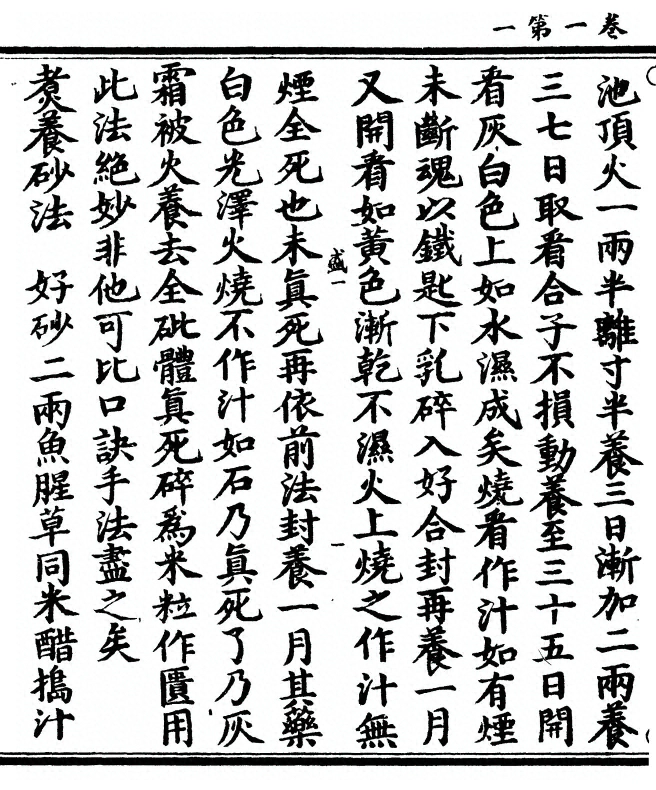 卷一第一
池頂火一兩半離寸半養三日漸加二兩養
三七日取看合子不損動養至三十五日開
看灰白色上如水濕成矣燒看作汁如有煙
未斷魂以鐵匙下乳碎入好合封再養一月
又開看如黃色漸乾不濕火上燒之作汁無
盛一
煙全死也未眞死再依前法封養一月其藥
白色光澤火燒不作汁如石乃眞死了乃灰
霜被火養去全砒體眞死碎爲米粒作匱用
此法絕妙非他可比口訣手法盡之矣
煑養砂法　好砂二兩魚腥草同米醋搗汁